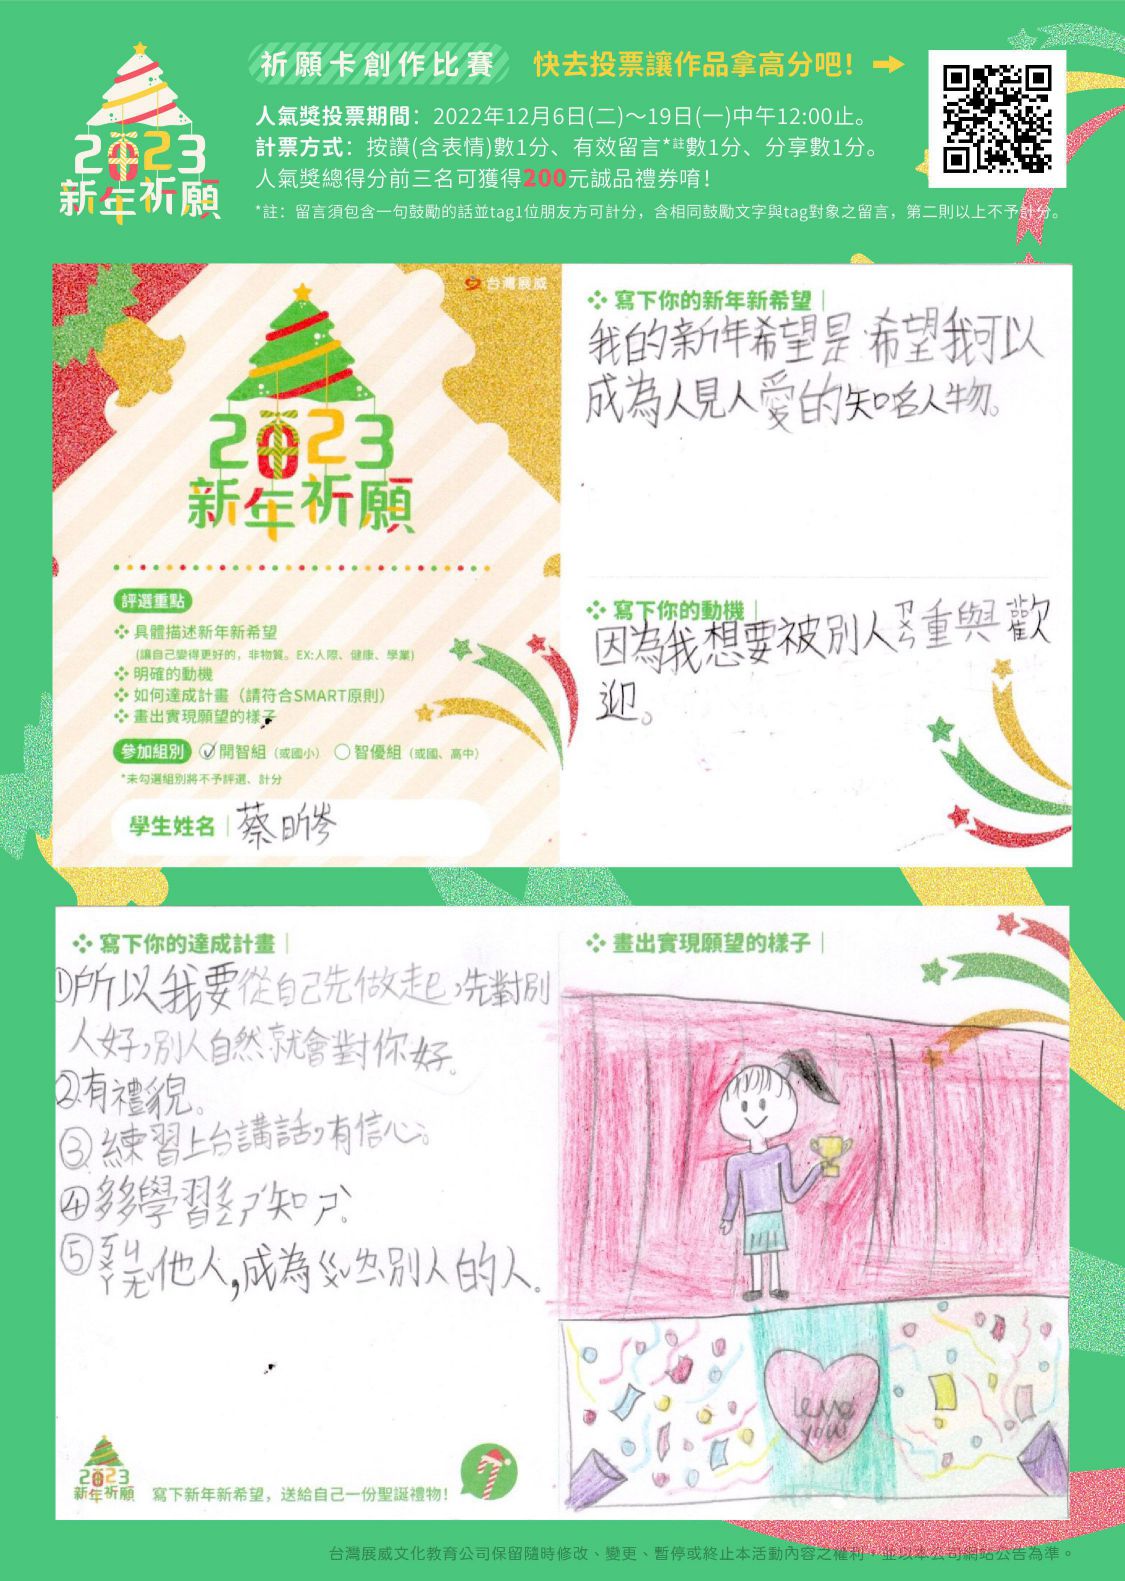 2023
新年祈願
祈願卡創作比賽
快去投票讓作品拿高分吧！
人氣獎投票期間：2022年12月6日(二)～19日(一)中午12:00止。
計票方式：按讚(含表情)數1分、有效留言*註數1分、分享數1分。
人氣獎總得分前三名可獲得200元誠品禮券唷！
*註：留言須包含一句鼓勵的話並tag1位朋友方可計分，含相同鼓勵文字與tag對象之留言，第二則以上不予計分。
台灣展威
2023
新年祈願
評選重點
具體描述新年新希望
(讓自己變得更好的，非物質。EX:人際、健康、學業)
明確的動機
如何達成計畫（請符合SMART原則）
畫出實現願望的樣子
參加組別 開智組（或國小） 智優組（或國、高中）
*未勾選組別將不予評選、計分
學生姓名｜蔡昕岑
寫下你的新年新希望｜
我的新年希望是希望我可以
成為人見人愛的知名人物。
寫下你的動機｜
因為我想要被別人ㄗㄨㄣ重與歡
迎。
寫下你的達成計畫｜
①所以我要從自己先做起，先對別
人好，別人自然就會對你好。
②有禮貌。
③練習上台講話，有信心。
④多多學習
⑤他人，成為別人的人。
2023
新年祈願
寫下新年新希望，送給自己一份聖誕禮物！
畫出實現願望的樣子｜
love
you!
台灣展威文化教育公司保留隨時修改、變更、暫停或終止本活動內容之權利，並以本公司網站公告為準。